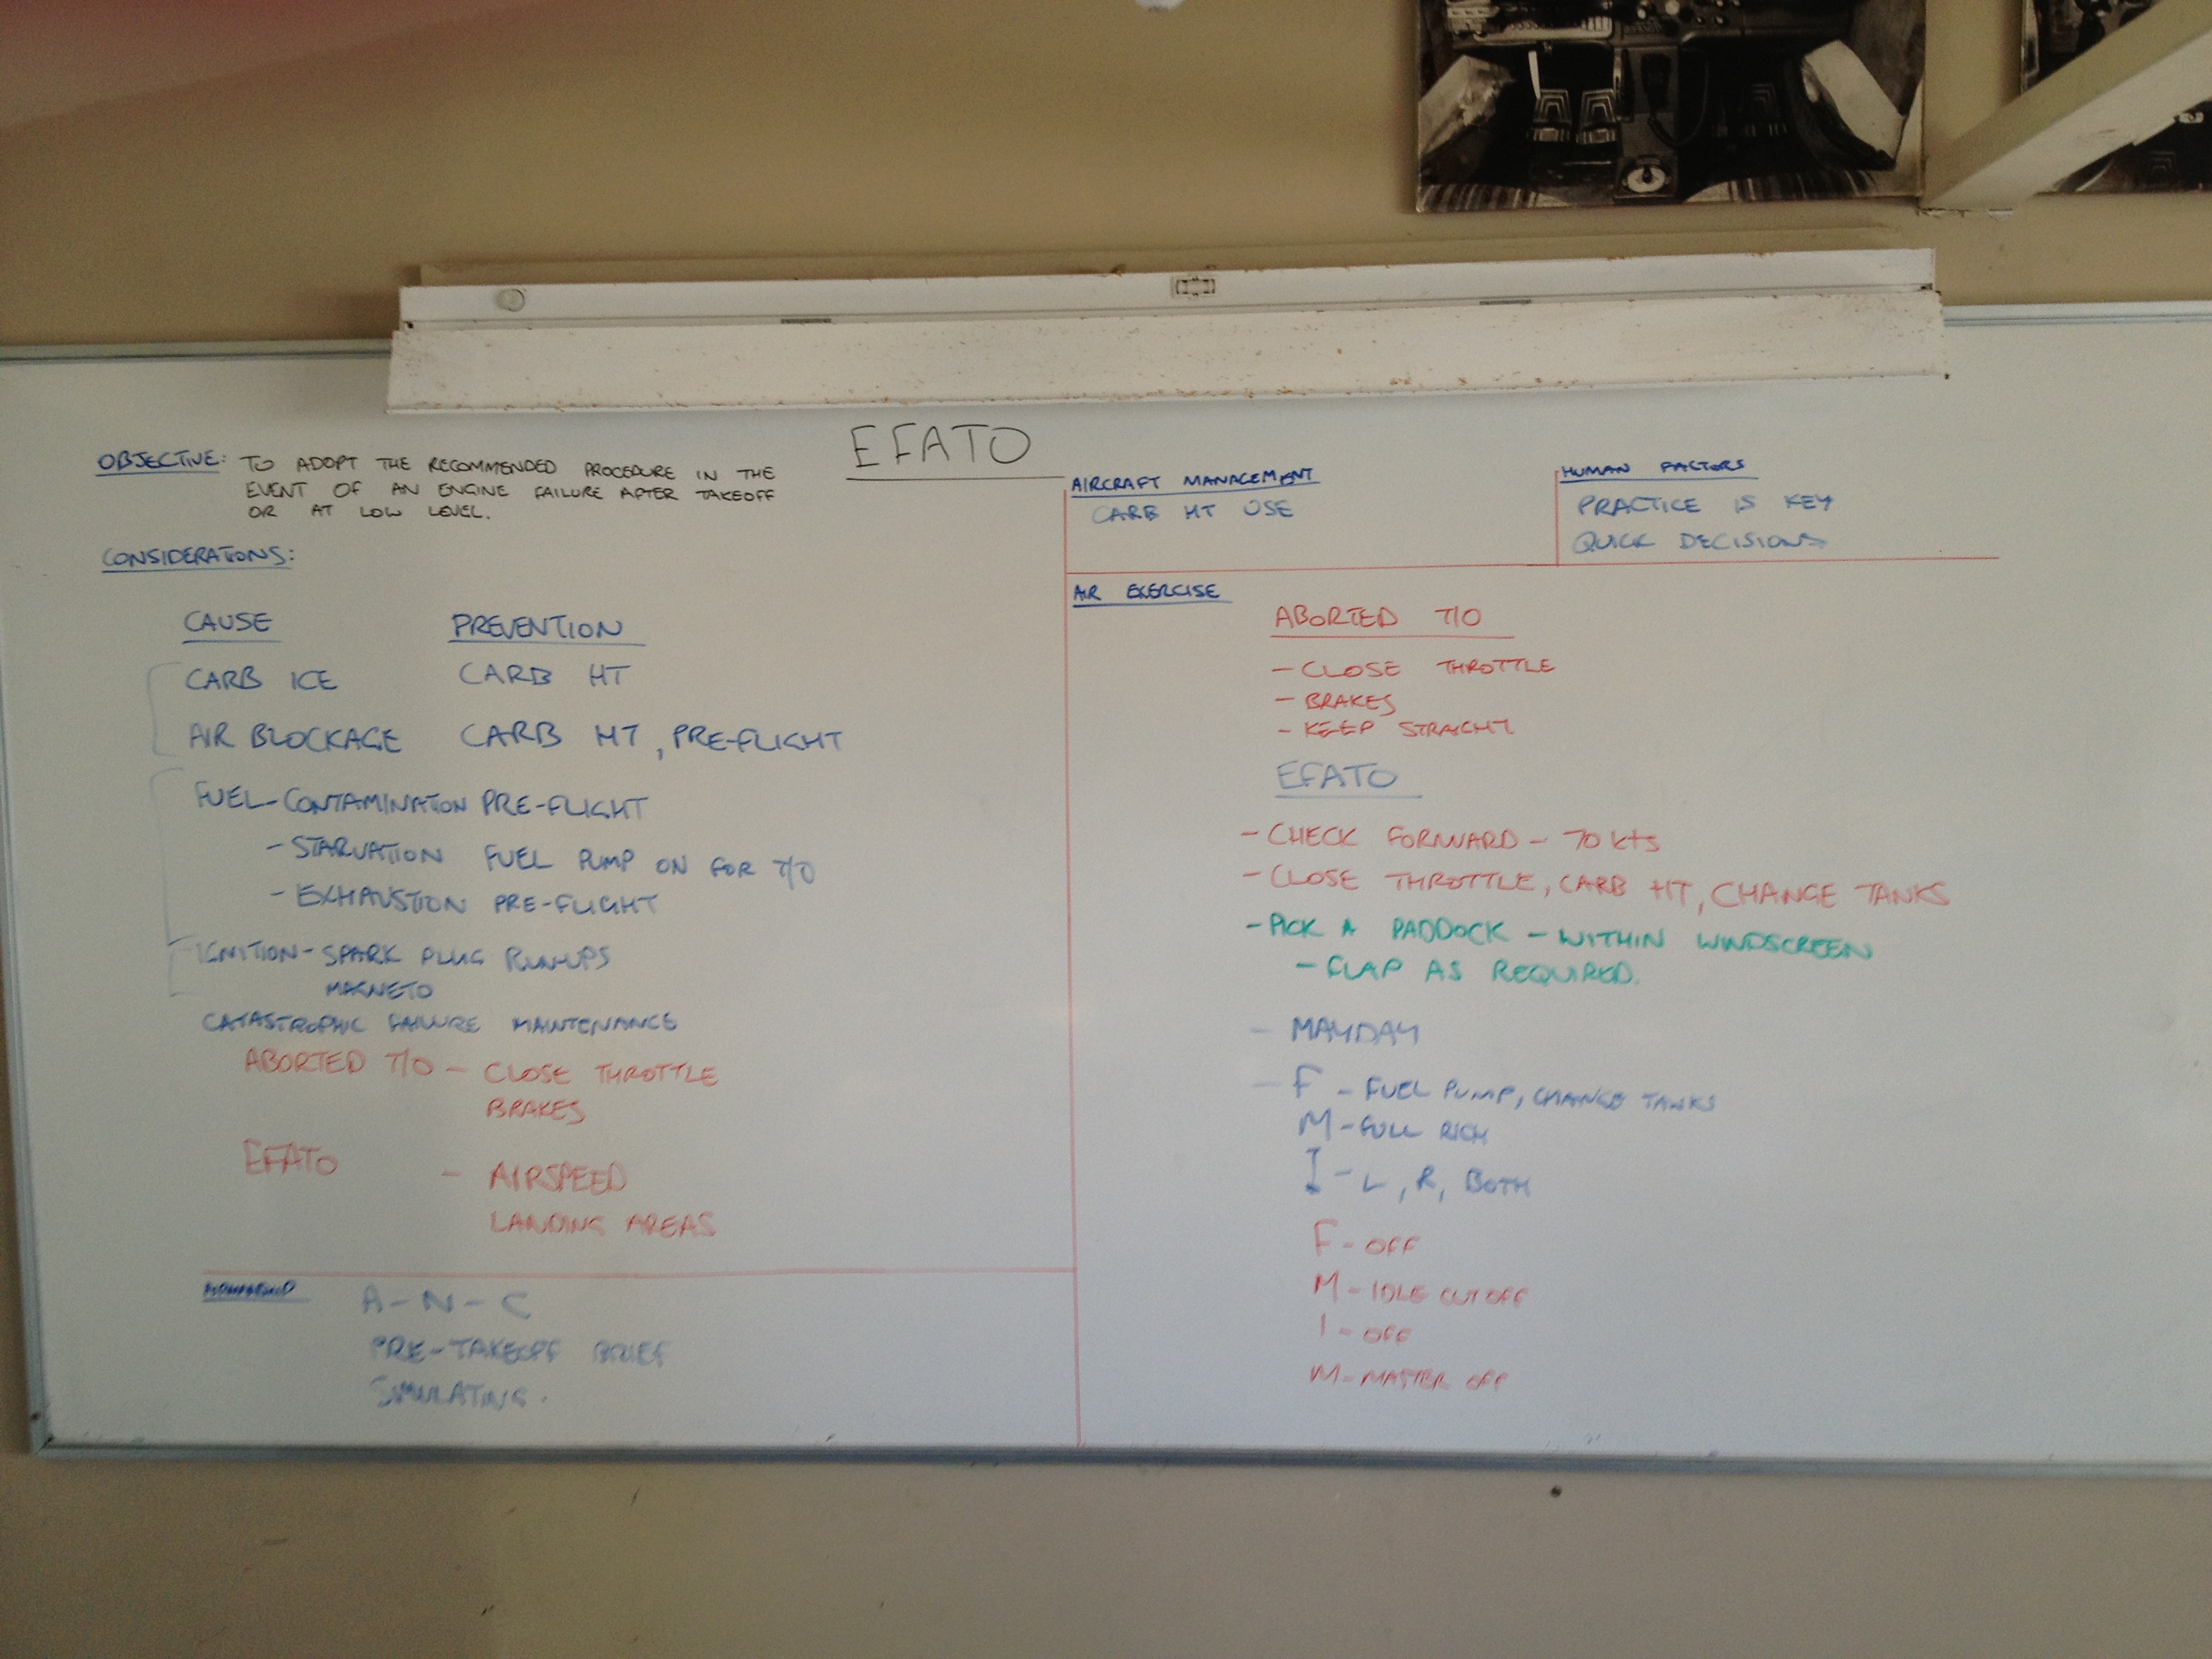 EFATO
OBJECTIVE: TO ADOPT THE RECOMMENDED PROCEDURE IN THE
EVENT OF AN ENGINE FAILURE AFTER TAKEOFF
OR AT LOW LEVEL.
CONSIDERATIONS:
CAUSE PREVENTION
CARB ICE CARB HT
AIR BLOCKAGE CARB HT, PRE-FLIGHT
FUEL-CONTAMINATION PRE-FLIGHT
- STARVATION FUEL PUMP ON FOR T/O
- EXHAUSTION PRE-FLIGHT
IGNITION- SPARK PLUG RUN-UPS
MAGNETO
CATASTROPHIC FAILURE MAINTENANCE
ABORTED T/O - CLOSE THROTTLE
BRAKES
EFATO - AIRSPEED
LANDING AREAS
A-N-C
PRE-TAKEOFF BRIEF
SIMULATING.
AIRCRAFT MANAGEMENT
CARB HT USE
HUMAN FACTORS
PRACTICE IS KEY
QUICK DECISIONS
AIR EXERCISE
ABORTED T/O
- CLOSE THROTTLE
- BRAKES
- KEEP STRAIGHT
EFATO
- CHECK FORWARD - 70 kts
- CLOSE THROTTLE, CARB HT, CHANGE TANKS
- PICK A PADDOCK - WITHIN WINDSCREEN
- FLAP AS REQUIRED.
- MAYDAY
- F - FUEL PUMP, CHANGE TANKS
M - FULL RICH
I - L, R, BOTH
F - OFF
M - IDLE CUT OFF
I - OFF
M - MASTER OFF